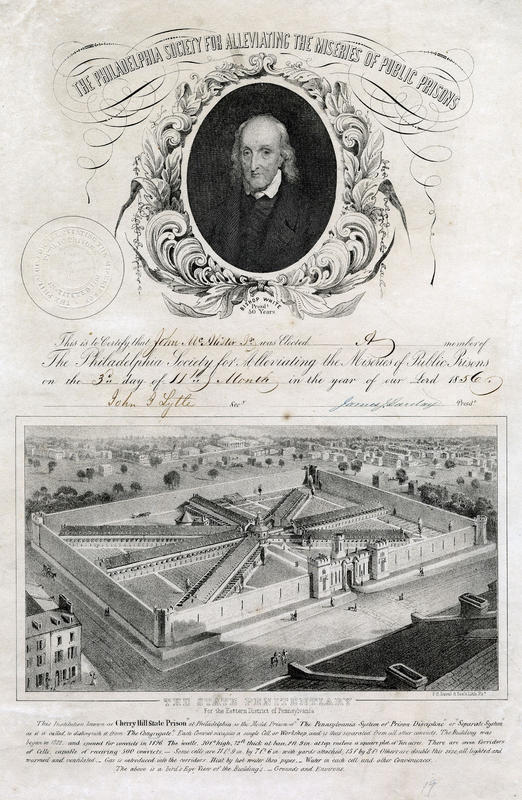 THE PHILADELPHIA SOCIETY FOR ALLEVIATING THE MISERIES OF PUBLIC PRISONS
BISHOP WHITE
Presdt
50 Years
This is to Certify that John McAllister Jr. was Elected A member of
The Philadelphia Society for Alleviating the Miseries of Public Prisons
on the 3rd day of 11th Month in the year of our Lord 1856.
John J Lytle Secy James J Barclay Presdt
THE STATE PENITENTIARY
For the Eastern District of Pennsylvania
This Institution known as Cherry Hill State Prison at Philadelphia is the Model Prison of "The Pennsylvania System of Prison Discipline" or "Separate System
as it is called to distinguish it from "The Congregate" Each Convict occupies a single Cell or Workshop and is thus separated from all other convicts. The Building was
begun in 1822, and opened for convicts in
high, thick at base, at top encloses a square plot of Ten acres. There are seven Corridors
of Cells, capable of receiving 500 convicts. Some cells are with yards attached, Others are double this size, all lighted and
warmed and ventilated. Gas is introduced into the corridors. Heat by hot water thro pipes. Water in each cell and other Conveniences.
The above is a bird's Eye View of the Buildings Grounds and Environs.